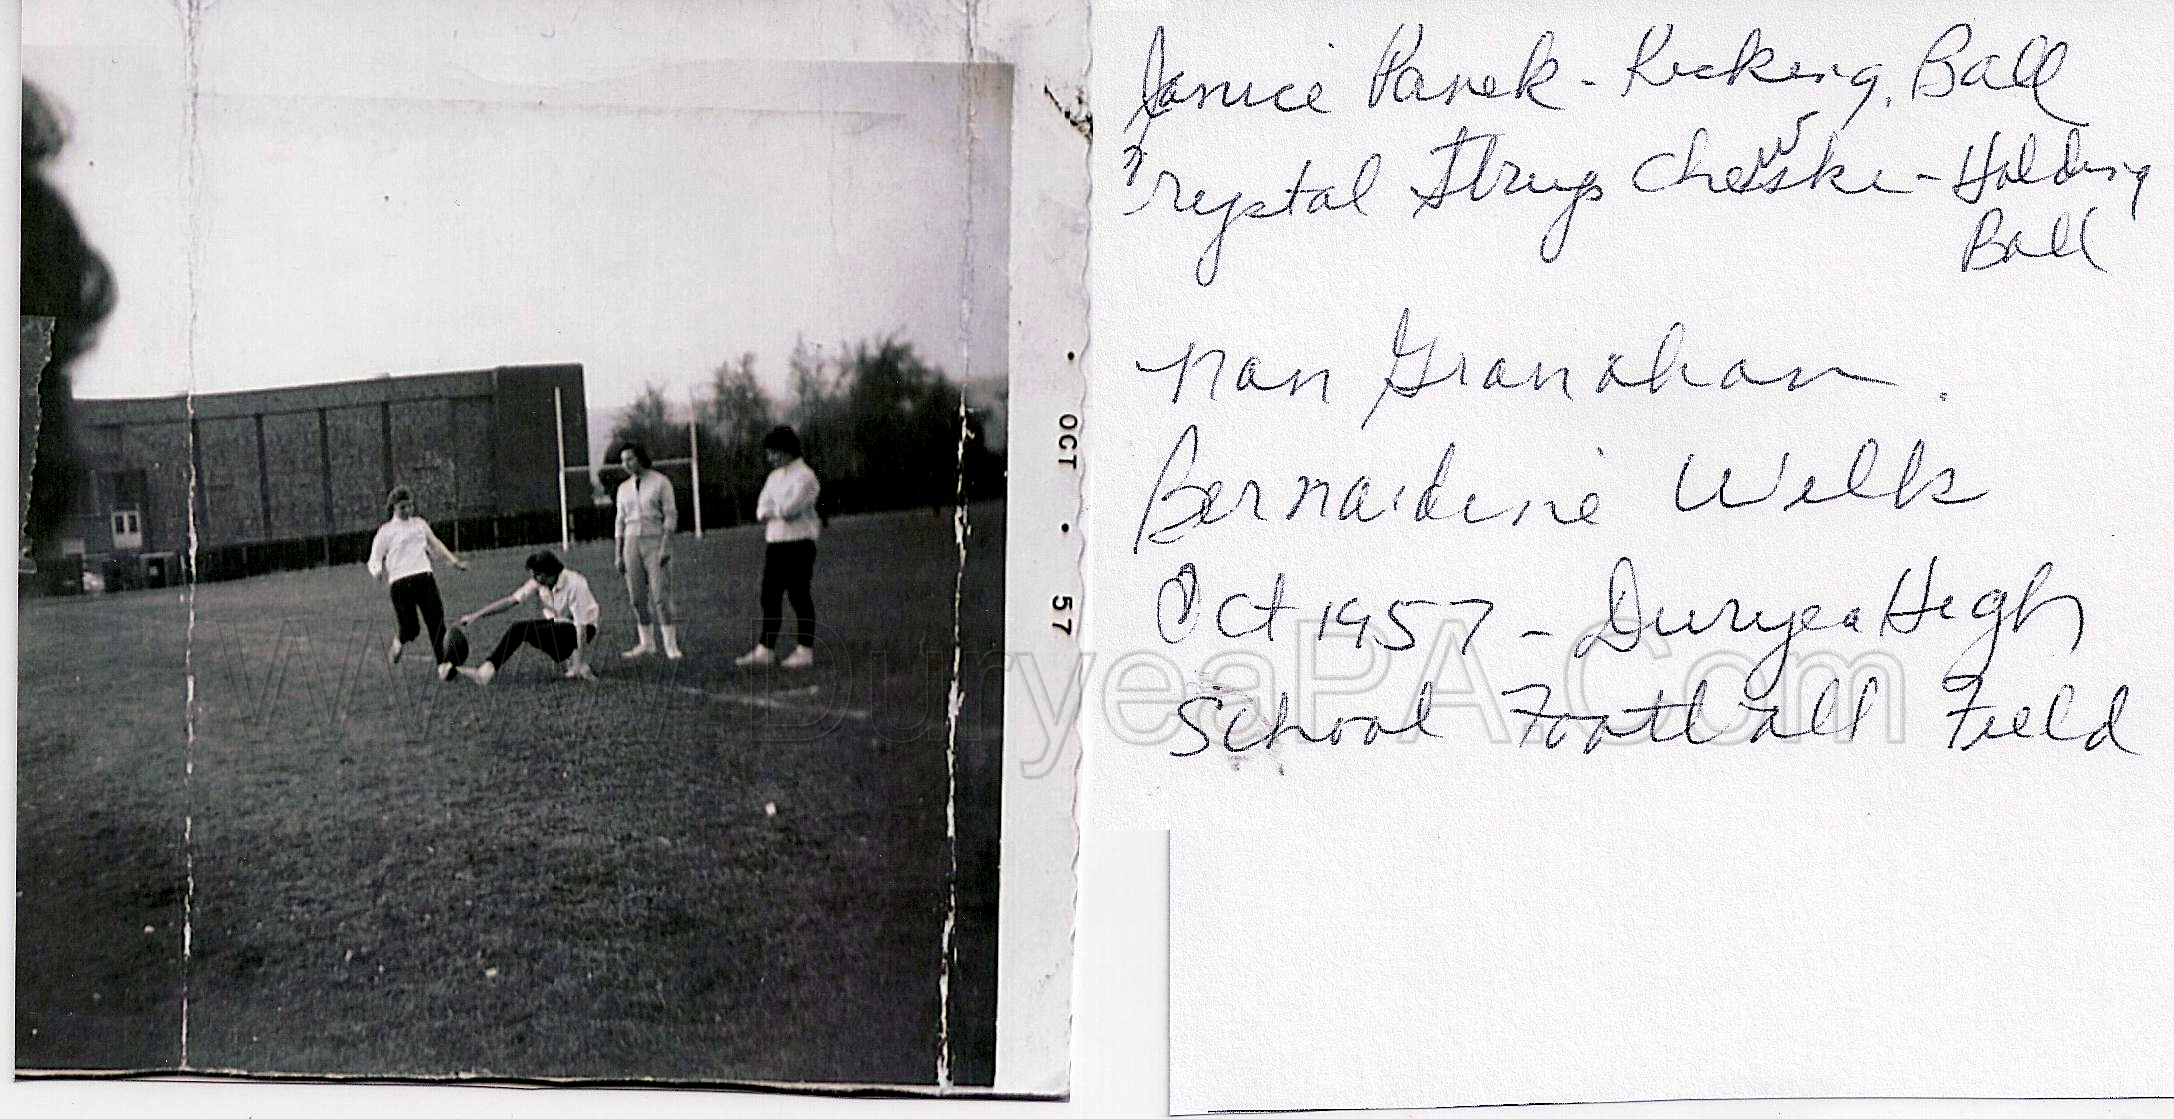 Janice Panek - Kicking Ball
Crystal Strup Chewski - Holding
Ball
OCT • 57
Nan Granahan.
Bernadine Wilk
Oct 1957 - Duryea High
School Football Field
www.DuryeaPA.Com